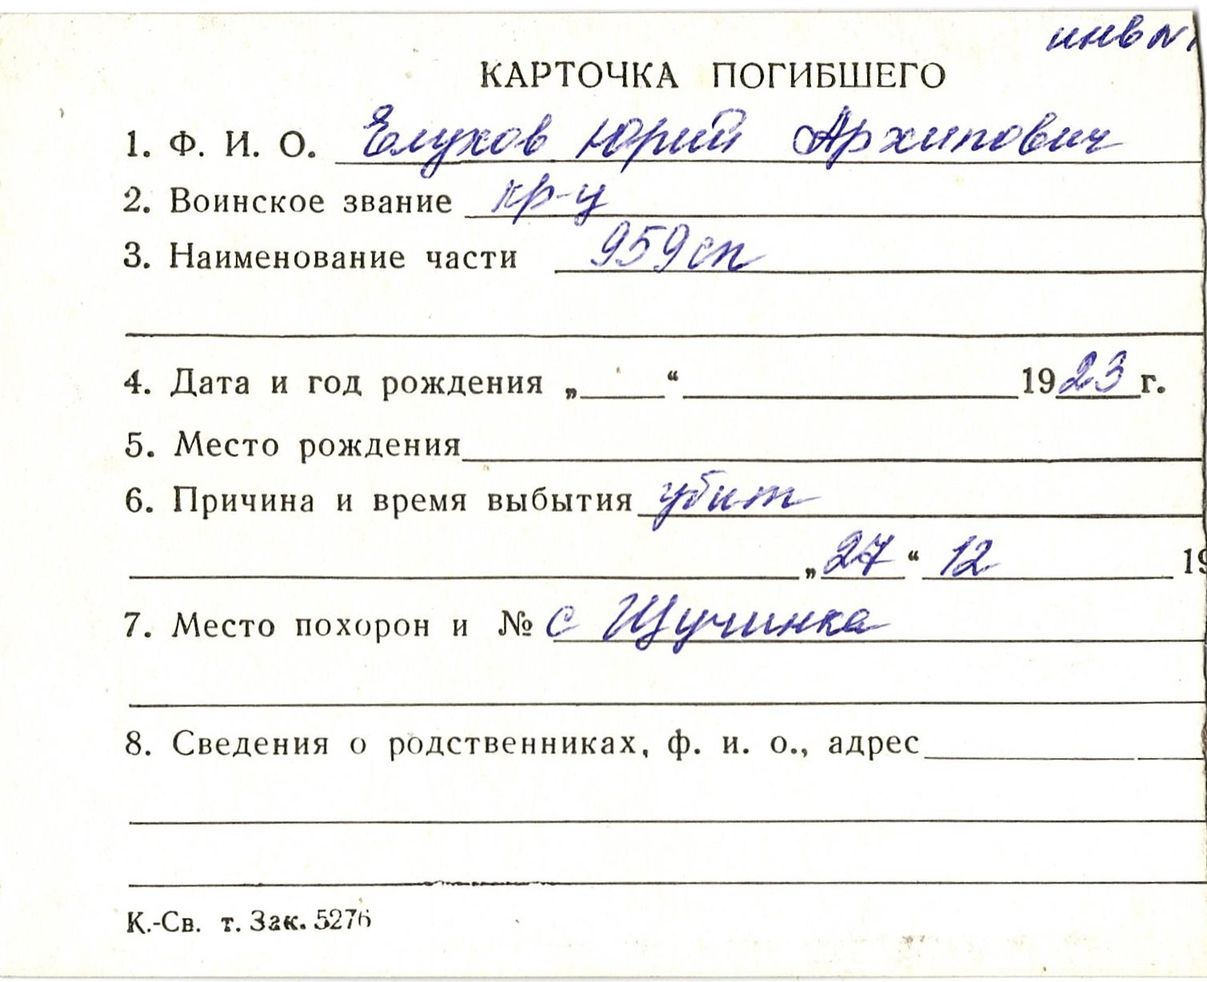 инв №
КАРТОЧКА ПОГИБШЕГО
1. Ф. И. О. Елухов Юрий Архипович
2. Воинское звание кр-ц
3. Наименование части 959сп
4. Дата и год рождения „ “ 1923 г.
5. Место рождения
6. Причина и время выбытия убит
„27“ 12 19
7. Место похорон и № с Щучинка
8. Сведения о родственниках, ф. и. о., адрес
К.-Св. т. Зак. 5276